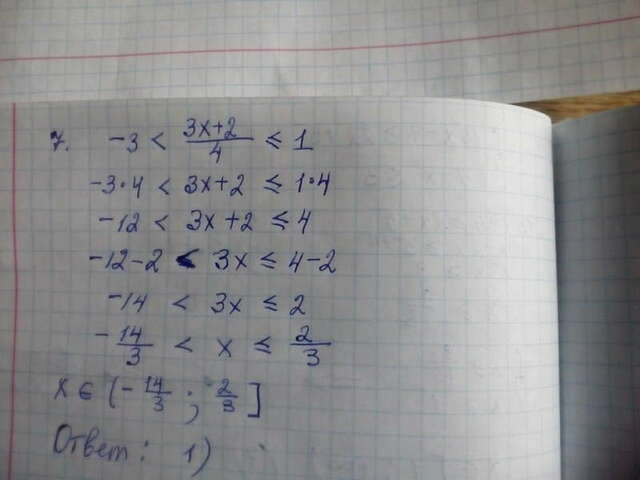 7. -3 < (3x+2)/4 ≤ 1
-3·4 < 3x+2 ≤ 1·4
-12 < 3x+2 ≤ 4
-12-2 < 3x ≤ 4-2
-14 < 3x ≤ 2
-14/3 < x ≤ 2/3
x ∈ (-14/3 ; 2/3]
Ответ: 1)